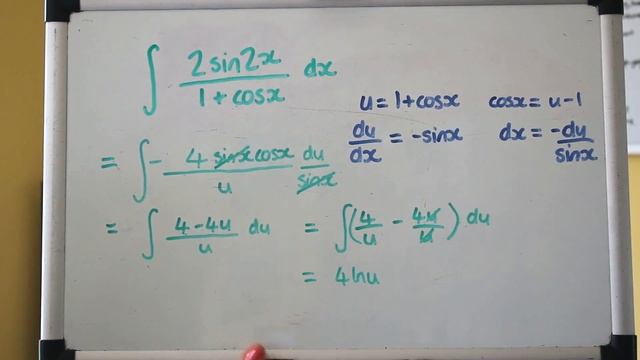 ∫ 2sin2x / 1+cosx dx
u = 1+cosx cosx = u-1
du/dx = -sinx dx = -du/sinx
= ∫ - 4 sinx cosx / u du/sinx
= ∫ 4-4u / u du = ∫ (4/u - 4u/u) du
= 4lnu